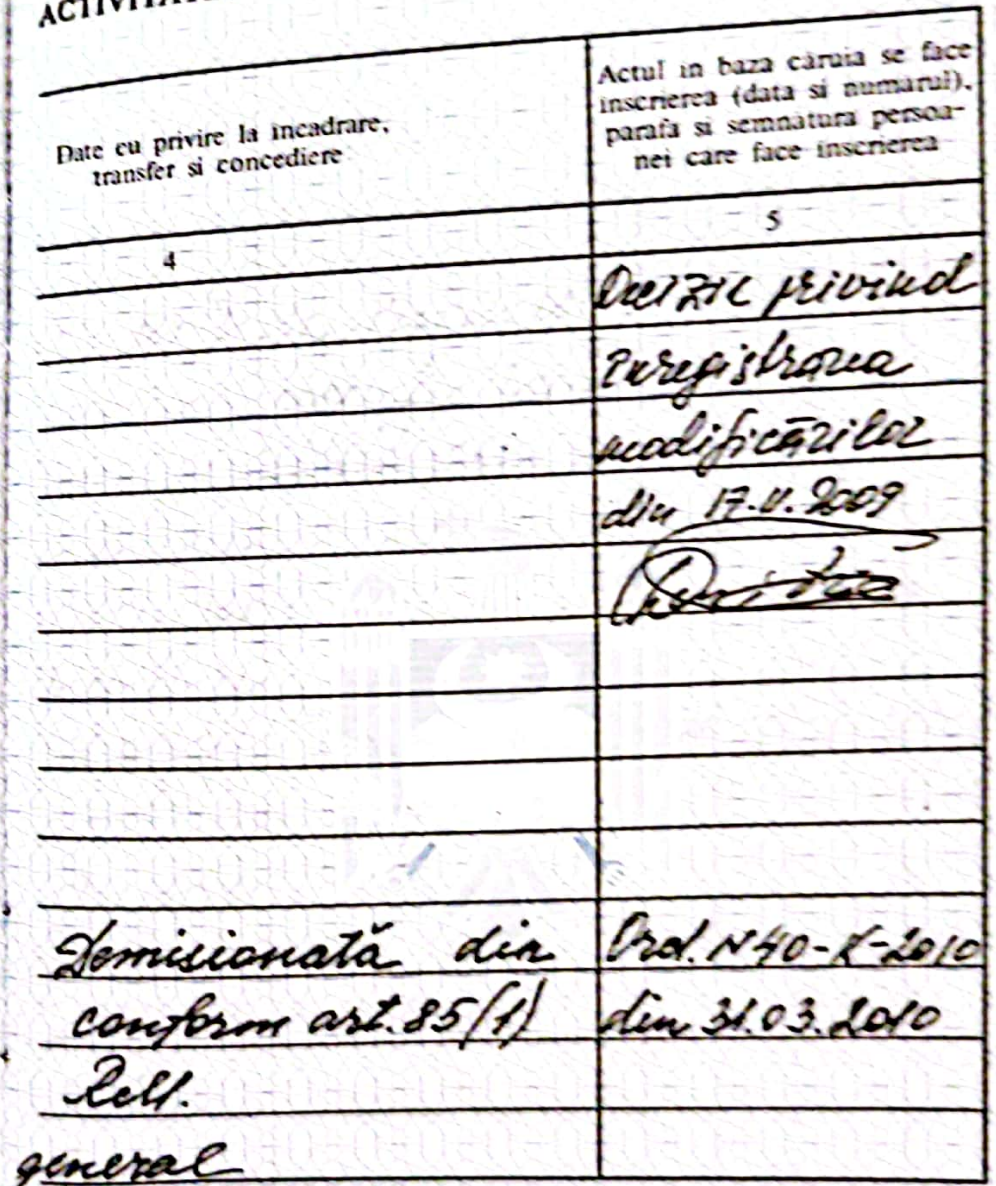 Date cu privire la incadrare,
transfer si concediere
Actul in baza căruia se face
inscrierea (data si numărul),
parafa si semnătura persoa-
nei care face inscrierea
4
5
privind
modificărilor
din 17.11.2009
Demisionată din
Ord. N40-K-2010
conform art. 85(1)
din 31.03.2010
general